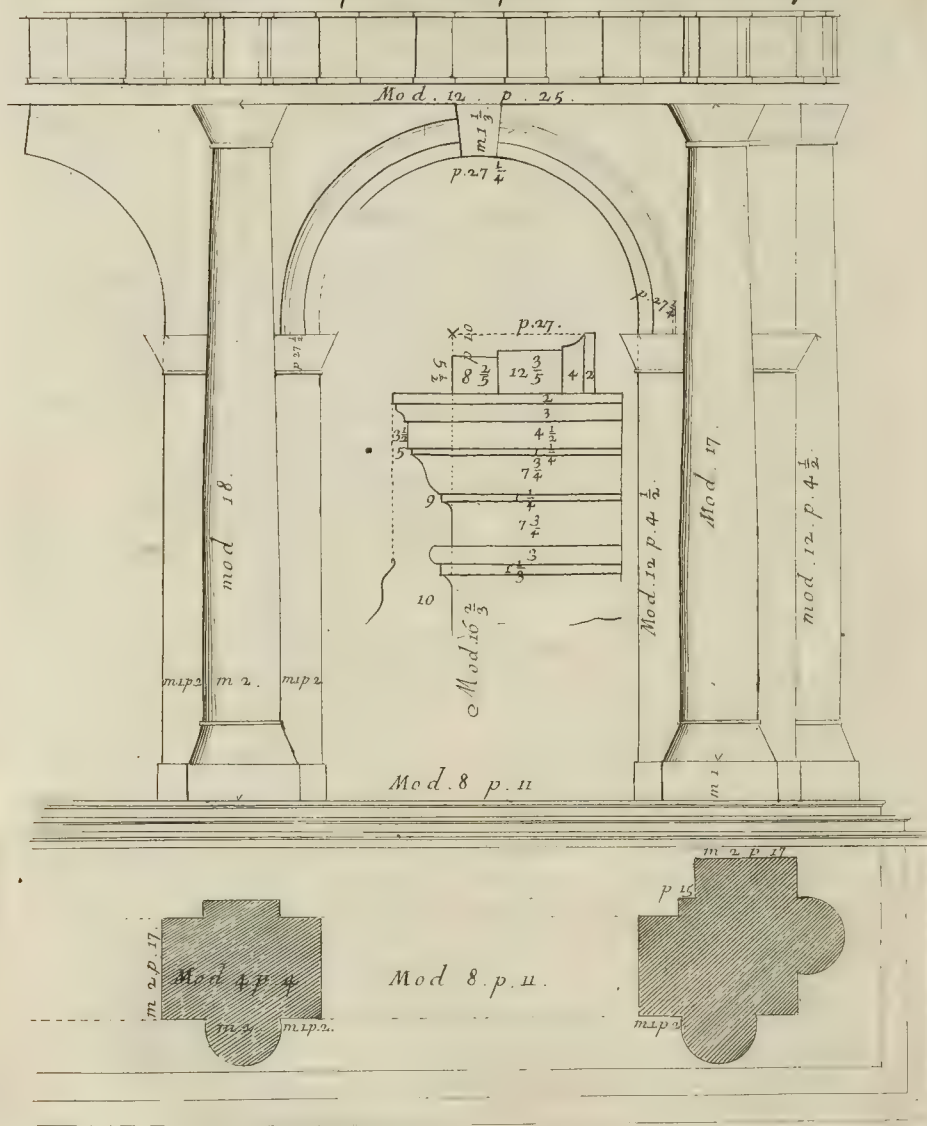 Mod. 12. p. 25.
m 1 1/3
p. 27 1/4
p. 27 1/2
p 27 1/2
p. 27.
p 10
5 1/2
8 2/5
12 3/5
4
2
2
3
3 1/2
4 1/2
5
1 1/4
7 3/4
9
1 1/4
7 3/4
3
1 1/3
10
Mod. 16 2/3
mod 18.
Mod. 12 p. 4 1/2.
Mod. 17.
mod. 12. p. 4 1/2
m1p2
m 2.
m1p2
Mod. 8 p. 11
m 1
m 2 p 17
p 15
m 2 p. 17.
Mod 4 p 4
Mod 8. p. 11.
m 2.
m1p.2.
m1p2